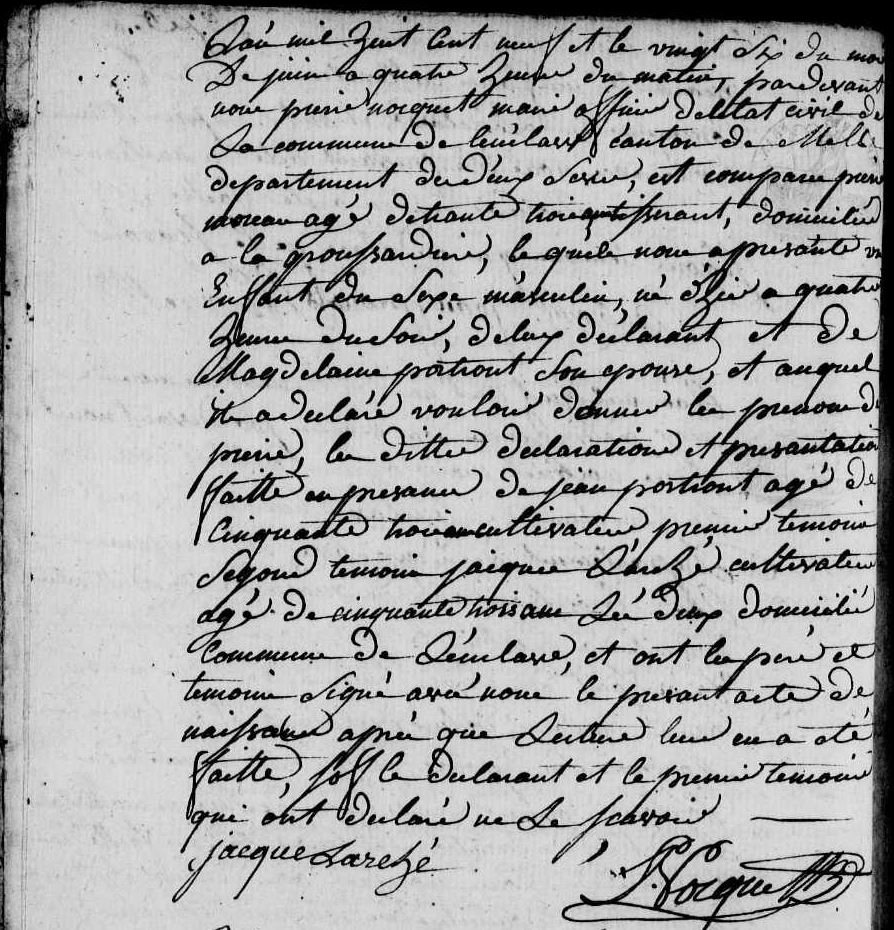 L'an mil huit cent neuf et le vingt six du moi
De juin a quatre heure du matin, pardevant
nous pierre nocquet maire officier deletat civil de
La commune de canton de Melle
departement de deux Sevre, est comparu pierre
moreau agé detrante trois ans tisserant, domicilié
a la groussardiere, le quele nous a presanté un
Enfant du Sexe masculin, né hier a quatre
heure du Soir, deluy déclarant et de
Magdelaine portront Son epouse, et auquel
il a declaré vouloir donner le prenom de
pierre, les ditte declaration et presantation
faitte en presance de jean portront agé de
Cinquante trois ans cultivateur premier temoin
Segond temoin jacque Larché cultivateur
agé de cinquante trois ans Lés deux domicilié
Commune de, et ont les peré et
temoin Signé avec nous le presant acte de
naissance aprés que Lecture leur en a eté
faitte, soff le declarant et le premier temoin
qui ont declaré ne Le scavoir
jacque Larché
P. Nocquet